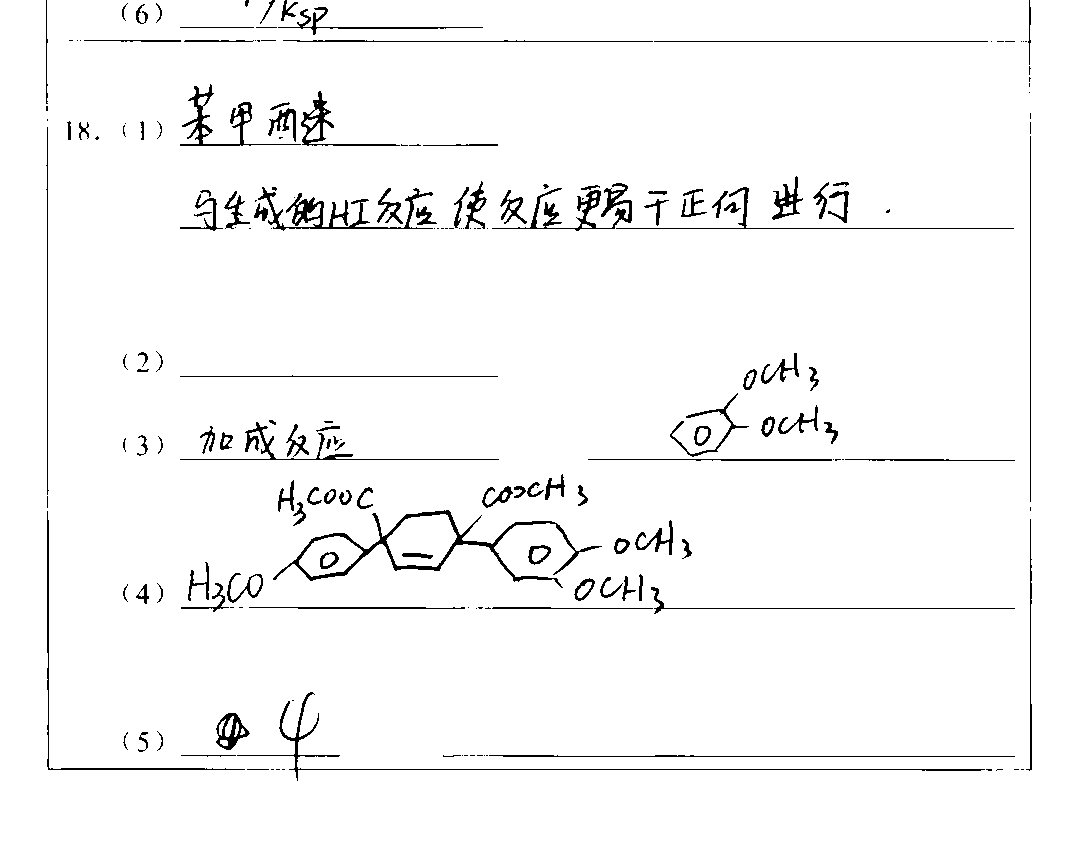 (6) 1/Ksp
18. (1) 苯甲酉迷
与生成的HI反应使反应更易于正向进行.
(2)
(3) 加成反应 OCH3 OCH3
H3COOC COOCH3
(4) H3CO OCH3 OCH3
(5) 4